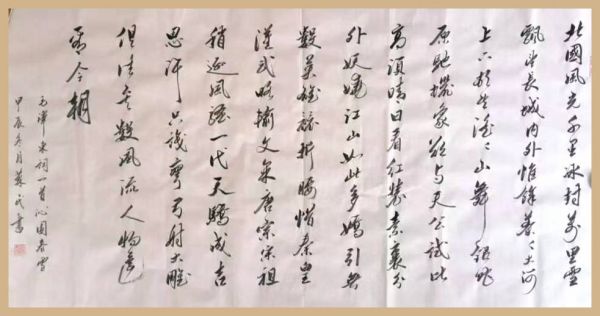 北國風光千里冰封萬里雪
飄望長城内外惟餘莽々大河
上下頓失滔々山舞銀蛇
原馳蠟象欲與天公試比
高須晴日看紅裝素裹分
外妖嬈江山如此多嬌引無
數英雄競折腰惜秦皇
漢武略輸文采唐宗宋祖
稍遜風騷一代天驕成吉
思汗只識彎弓射大雕
俱往矣數風流人物還
看今朝
毛澤東詞一首沁園春雪
甲辰冬月書